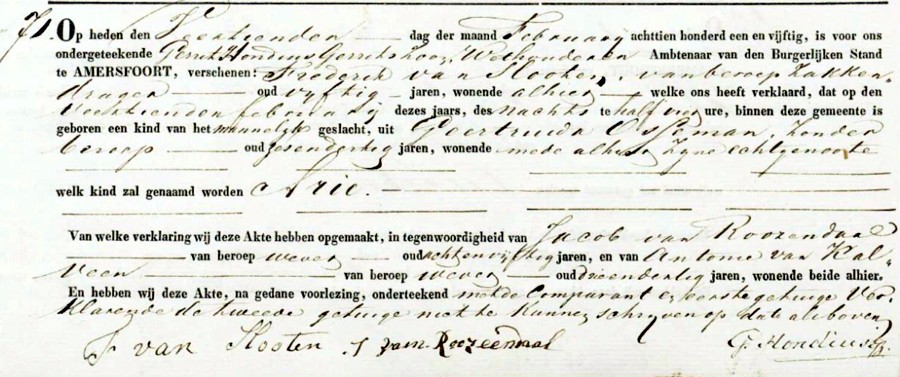 71. Op heden den Veertienden dag der maand Februarij achttien honderd een en vijftig, is voor ons
ondergeteekende Gerrit Hondius Gerritszoon, Wethouder en Ambtenaar van den Burgerlijken Stand
te AMERSFOORT, verschenen: Frederik van Slooten, van beroep zakken-
drager oud vijftig jaren, wonende alhier welke ons heeft verklaard, dat op den
Veertienden februarij dezes jaars, des nachts te half vier ure, binnen deze gemeente is
geboren een kind van het mannelijk geslacht, uit Geertruida Osseman, zonder
beroep oud zesendertig jaren, wonende mede alhier zijne echtgenoote
welk kind zal genaamd worden Arie.
Van welke verklaring wij deze Akte hebben opgemaakt, in tegenwoordigheid van Jacob van Roozendaal
van beroep wever oud achtenvijftig jaren, en van Antonie van Kal-
veen van beroep wever oud drieendertig jaren, wonende beide alhier.
En hebben wij deze Akte, na gedane voorlezing, onderteekend met de Comparant en eerste getuige Ver-
klarende de tweede getuige niet te kunnen schrijven op dato als boven
F van Slooten J van Roozendaal G. Hondius Gz.